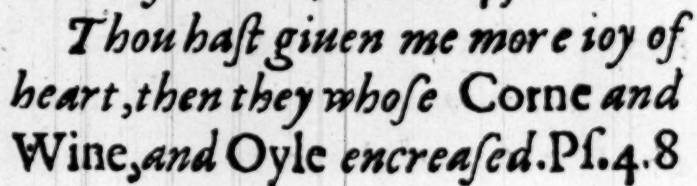 Thou haſt giuen me more ioy of
heart, then they whoſe Corne and
Wine, and Oyle encreaſed. Pſ. 4. 8